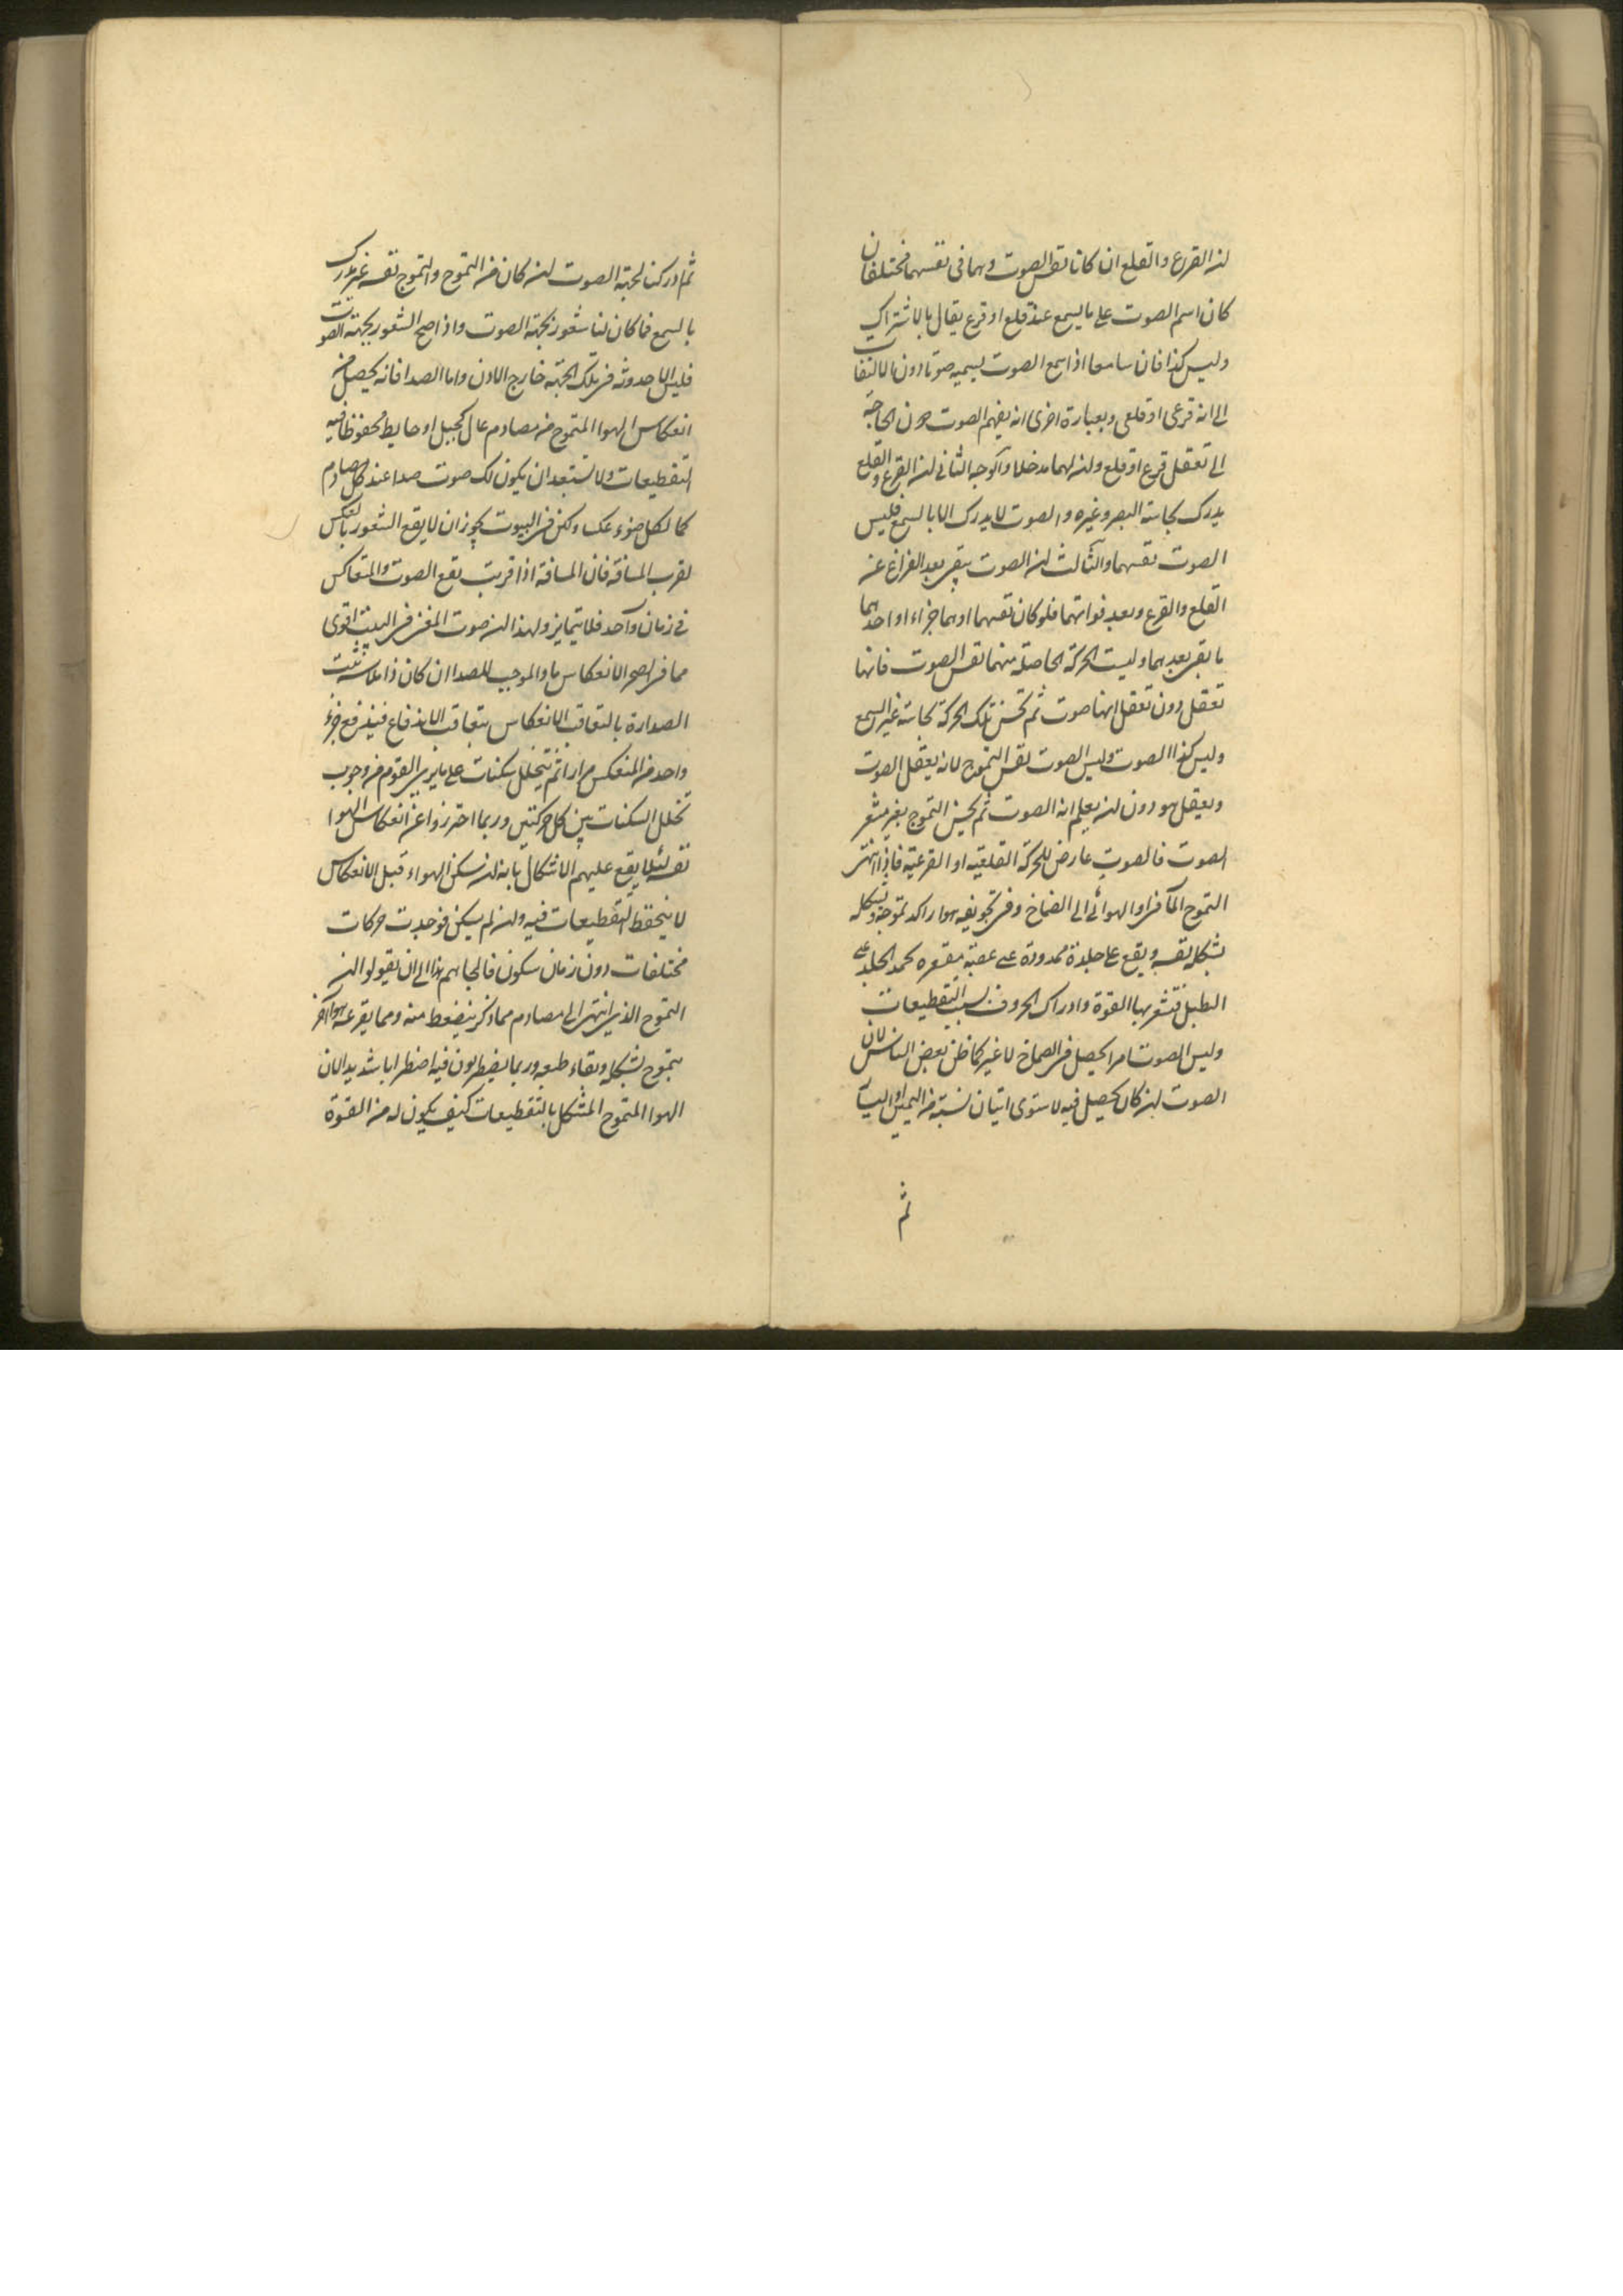 لان القرع والقلع ان كانا نفس الصوت وهما فى نفسهما مختلفان
كان اسم الصوت على ما يسمع عند قلع او قرع يقال بالاشتراك
وليس كذا فان سامعا اذا سمع الصوت يسميه صوتا دون الالتفات
الى انه قرعى او قلعى وبعبارة اخرى انه يفهم الصوت دون الحاجة
الى تعقل قرع او قلع وان لهما مدخلا والوجه الثانى ان القرع والقلع
يدرك بحاسة البصر وغيره والصوت لا يدرك الا بالسمع فليس
الصوت نفسهما والثالث ان الصوت يبقى بعد الفراغ عن
القلع والقرع وبعد فواتهما فلو كان نفسهما او هما جزاء او احدهما
ما بقى بعدهما وليست الحركة الحاصلة منهما نفس الصوت فانها
تعقل دون تعقل انها صوت ثم تحس تلك الحركة بحاسة غير السمع
وليس كذا الصوت وليس الصوت نفس التموج لانه يعقل الصوت
ويعقل هو دون ان يعلم انه الصوت ثم يحس التموج بغير مشعر
الصوت فالصوت عارض للحركة القلعية او القرعية فاذا انتهى
التموج المآئى او الهوائى الى الصماخ وفى تجويفه هوا راكد تموجه وتشكله
بشكل نفسه ويقع على جلدة ممدودة على عصبة مقعرة كمد الجلد على
الطبل فتشعر بها القوة وادراك الحروف بسبب التقطيعات
وليس الصوت امرا يحصل فى الصماخ لا غير كما ظن بعض الناس لان
الصوت ان كان يحصل فيه لاستوى اتيان نسبته من اليمين او اليسار
ثم
ثم ادركنا لجهة الصوت ان كان من التموج والتموج نفسه غير مدرك
بالسمع فما كان لنا شعور بجهة الصوت واذا صح الشعور بجهة الصوت
فليس الا حدوثه فى تلك الجهة خارج الاذن واما الصدا فانه يحصل من
انعكاس الهوا المتموج من مصادم عال كجبل او حايط محفوظا فيه
التقطيعات ولا تستبعد ان يكون لكل صوت صدا عند كل مصادم
كما لكل ضوء عكس ولكن فى البيوت يجوز ان لا يقع الشعور بالعكس
لقرب المسافة فان المسافة اذا قربت يقع الصوت والمتعاكس
فى زمان واحد فلا يتمايز ولهذا ان صوت المغنى فى البيت اقوى
مما فى الصحر الانعكاس ما والموجب للصدا ان كان ذا ملاسة ثبت
الصدا زمانا لتعاقب الانعكاس بتعاقب الاندفاع فيندفع جزء
واحد من المنعكس مرارا ثم يتخلل سكنات على ما يرى القوم من وجوب
تخلل السكنات بين كل حركتين وربما احترزوا عن انعكاس الهوا
نفسه لئلا يقع عليهم الاشكال بانه ان سكن الهواء قبل الانعكاس
لا يتحفظ التقطيعات فيه وان لم يسكن فوجدت حركات
مختلفات دون زمان سكون فالجاهم هذا الى ان يقولوا ان
التموج الذى انتهى الى مصادم مما ذكر ينضغط منه ومما يقرعه هوا آخر
يتموج بشكله وبقاء طبعه وربما يضطربون فيه اضطرابا شديدا لان
الهوا المتموج المشكل بالتقطيعات كيف يكون له من القوة